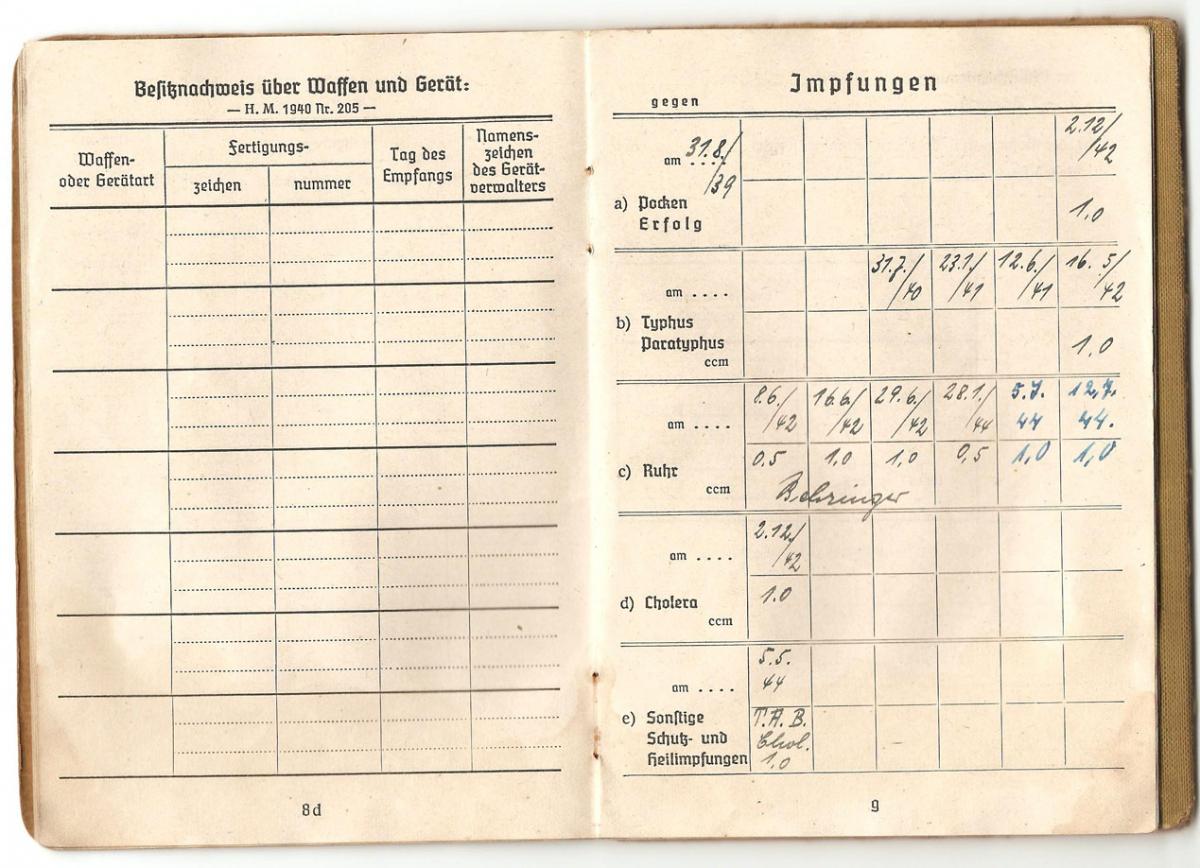 Besitznachweis über Waffen und Gerät:
— H. M. 1940 Nr. 205 —
Waffen-
oder Gerätart
Fertigungs-
zeichen
nummer
Tag des
Empfangs
Namens-
zeichen
des Gerät-
verwalters
8d
Impfungen
gegen
am .... 31.8./39
2.12/42
a) Pocken
Erfolg
1.0
am ....
31.7./40 23.1./41 12.6./41 16.5/42
b) Typhus
Paratyphus
ccm
1.0
am ....
8.6./42 16.6/42 29.6./42 28.1./44 5.7.44 12.7.44.
c) Ruhr
ccm
0,5 1,0 1,0 0,5 1,0 1,0
Behringer
am ....
2.12./42
d) Cholera
ccm
1.0
am ....
5.5.44
e) Sonstige
Schutz- und
Heilimpfungen
T.A.B.
Chol.
1.0
9